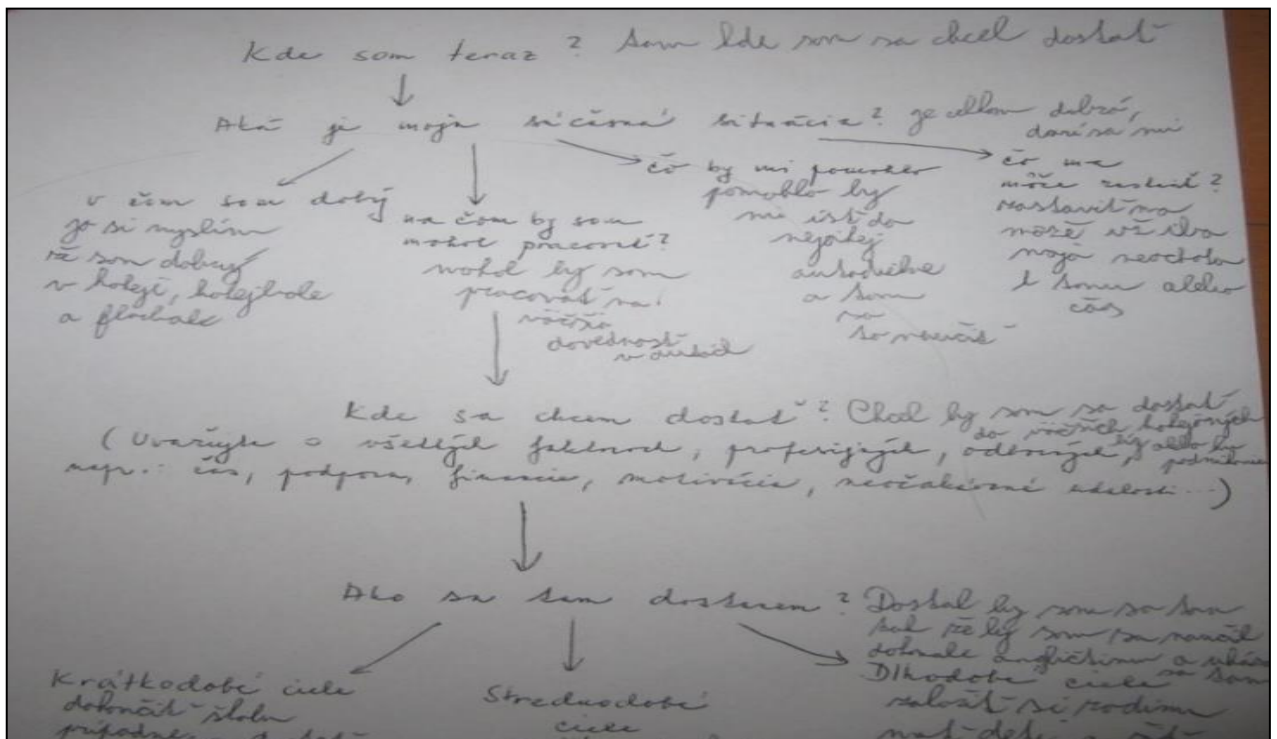 Kde som teraz? Som kde som sa chcel dostať
Aká je moja súčasná situácia? je celkom dobrá,
darí sa mi
v čom som dobrý
ja si myslím
že som dobrý
v hokeji, hokejbale
a florbale
na čom by som
mohol pracovať?
mohol by som
pracovať na
väčšia
dovednosť
v
čo by mi pomohlo
pomohlo by
mi ísť do
nejakej
autodielne
a tam
sa
to naučiť
čo ma
môže zastaviť?
zastaviť ma
môže už iba
moja neochota
k tomu alebo
čas
Kde sa chcem dostať? Chcel by som sa dostať
do väčších hokejových
(Uvažujte o všetkých faktoroch, profesijných, odborných,
alebo by
podnikanie
napr.: čas, podpora, financie, motivácia, neočakávané udalosti...)
Ako sa tam dostanem? Dostal by som sa tam
tak že by som sa naučil
dokonale angličtinu a
sa tam
Krátkodobé ciele
dokončiť školu
prípadne
Strednodobé
ciele
Dlhodobé ciele
založiť si rodinu
mať deti